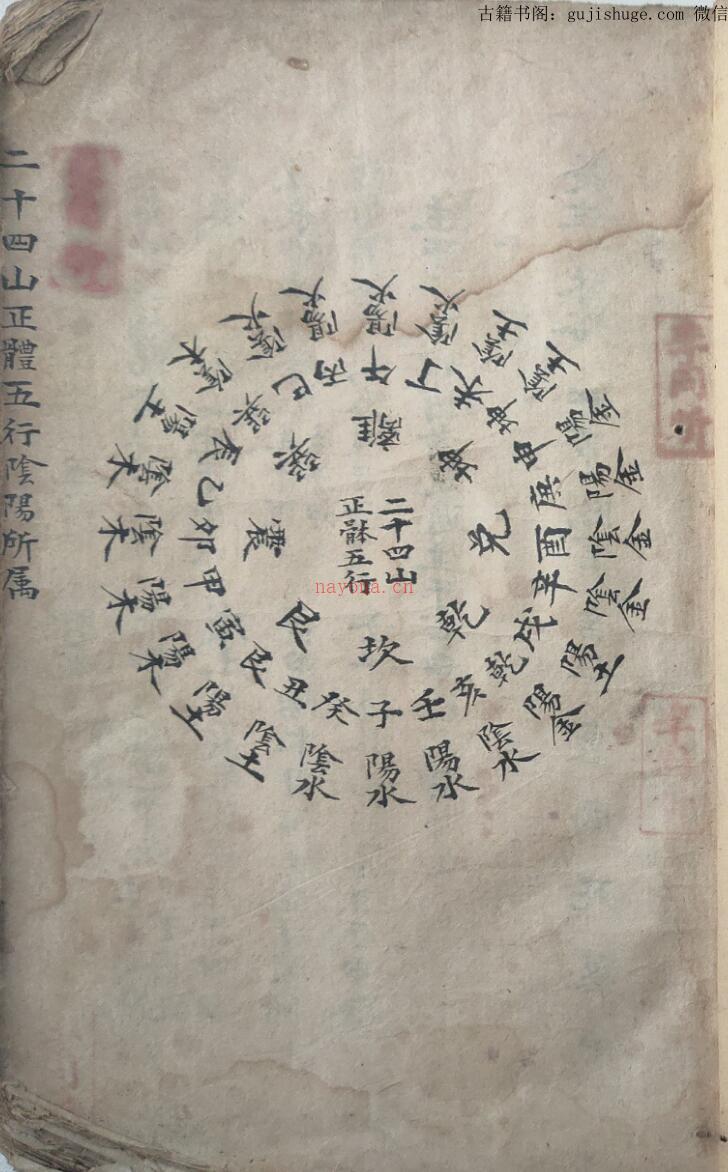 古籍书阁：gujishuge.com 微信
二十四山正體五行陰陽所属
二十四山
正骵五行
nayona.cn
離
坤
兑
乾
坎
艮
震
巽
午
丁
未
坤
申
庚
酉
辛
戌
乾
亥
壬
子
癸
丑
艮
寅
甲
卯
乙
辰
巽
巳
丙
陽火
陰火
陰土
陰土
陽金
陽金
陰金
陰金
陽土
陽金
陰水
陽水
陽水
陰水
陰土
陽土
陽木
陽木
陰木
陰木
陽土
陰木
陰火
陽火